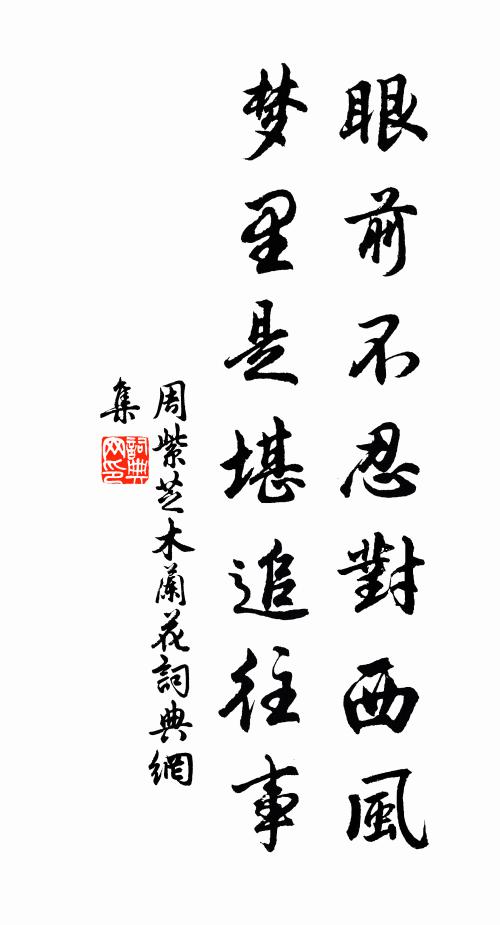 眼前不忍對西風
梦里是堪追往事
周紫芝木蘭花詞典網
集
詞典
网印